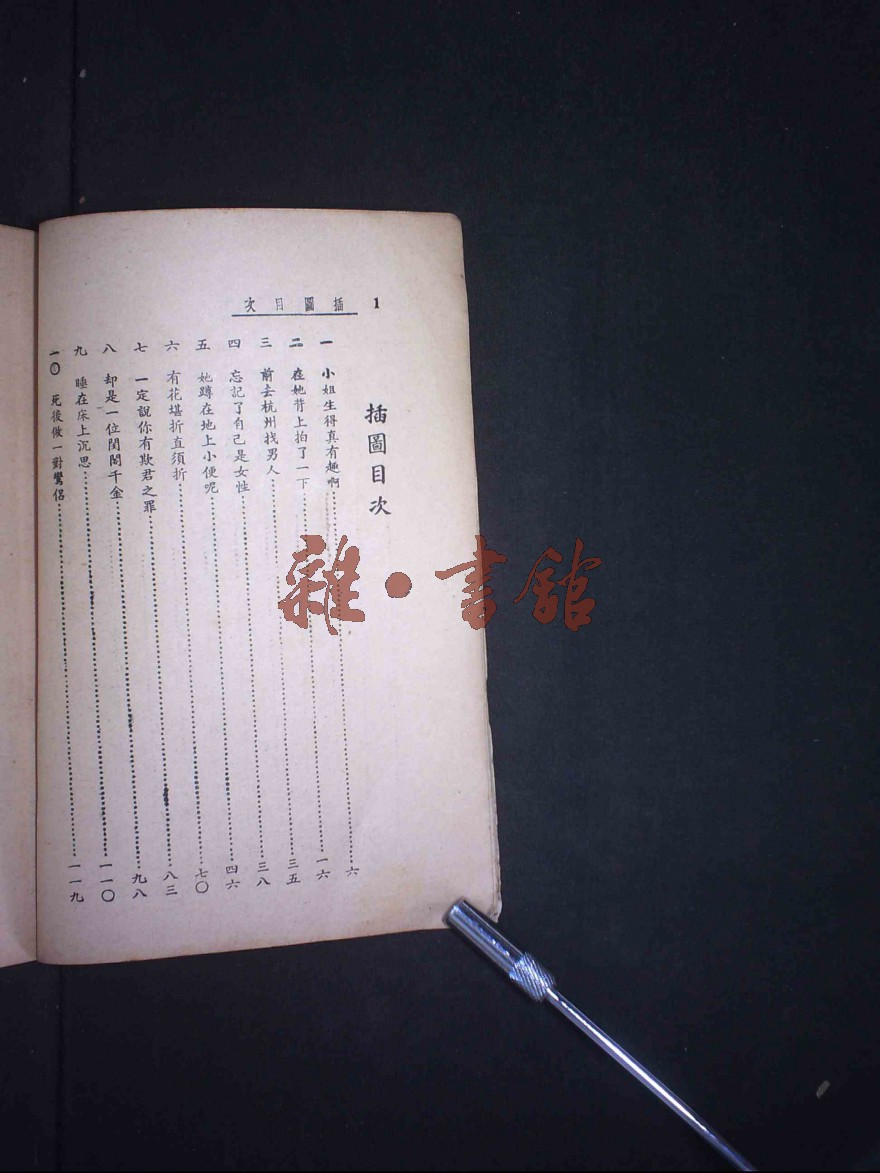 1 插圖目次
插圖目次
一 小姐生得真有趣啊……六
二 在她背上拍了一下……一六
三 前去杭州找男人……三五
四 忘記了自己是女性……三八
五 她蹲在地上小便呢……四六
六 有花堪折直須折……七〇
七 一定說你有欺君之罪……八三
八 却是一位閨閣千金……九八
九 睡在床上沉思……一一〇
一〇 死後做一對鸞侶……一一九
雜·書館